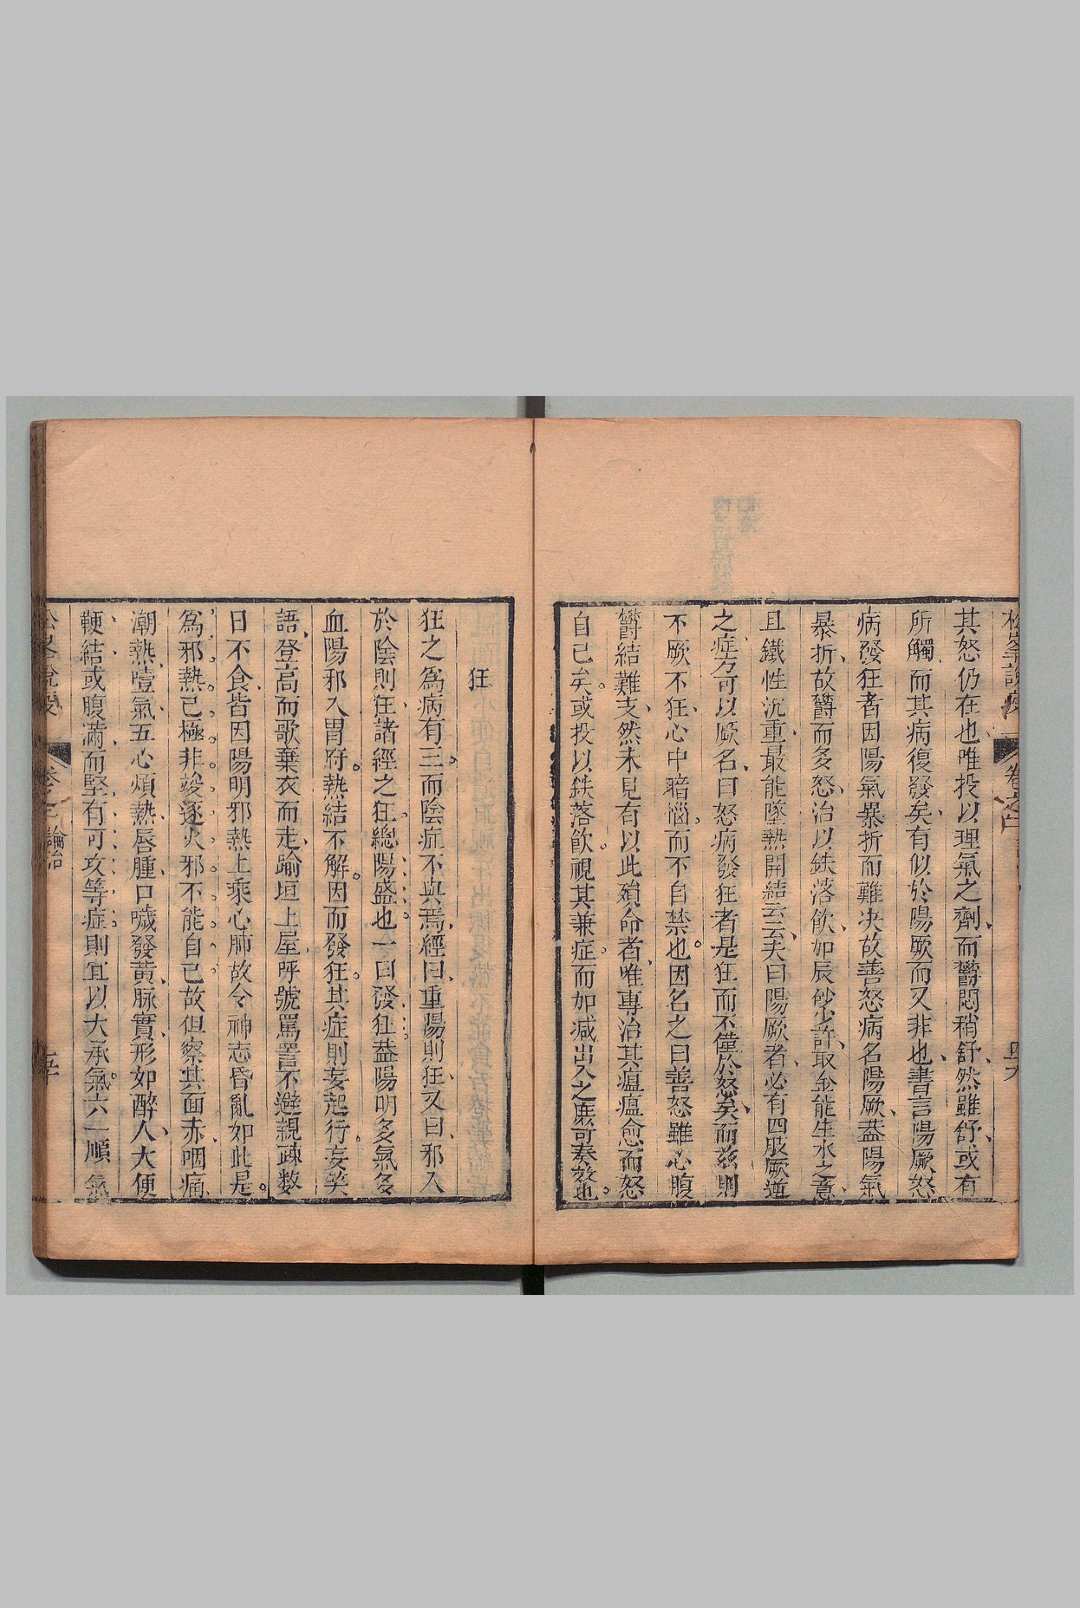 其怒仍在也唯投以理氣之劑而鬱悶稍舒然雖舒或有
所觸而其病復發矣有似於陽厥而又非也書言陽厥怒
病發狂者因陽氣暴折而難决故善怒病名陽厥葢陽氣
暴折故鬱而多怒治以鉄落飲如辰砂少許取金能生水之意
且鐵性沉重最能墜熱開結云云夫曰陽厥者必有四肢厥逆
之症方可以厥名曰怒病發狂者是狂而不僅於怒矣而兹則
不厥不狂心中暗惱而不自禁也因名之曰善怒雖心腹
鬱結難支然未見有以此殞命者唯專治其瘟瘟愈而怒
自已矣或投以鉄落飲視其兼症而加减出入之庶可奏效也
狂
狂之為病有三而陰症不與焉經曰重陽則狂又曰邪入
於陰則狂諸經之狂總陽盛也一曰發狂葢陽明多氣多
血陽邪入胃府熱結不解因而發狂其症則妄起行妄笑
語登高而歌棄衣而走踰垣上屋呼號罵詈不避親疎数
日不食皆因陽明邪熱上乘心肺故令神志昏亂如此是
為邪熱已極非峻逐火邪不能自已故但察其面赤咽痛
潮熱噎氣五心煩熱唇腫口噦發黄脉實形如醉人大便
鞕結或腹滿而堅有可攻等症則宜以大承氣六一順氣
松峯說疫
卷之二
論治